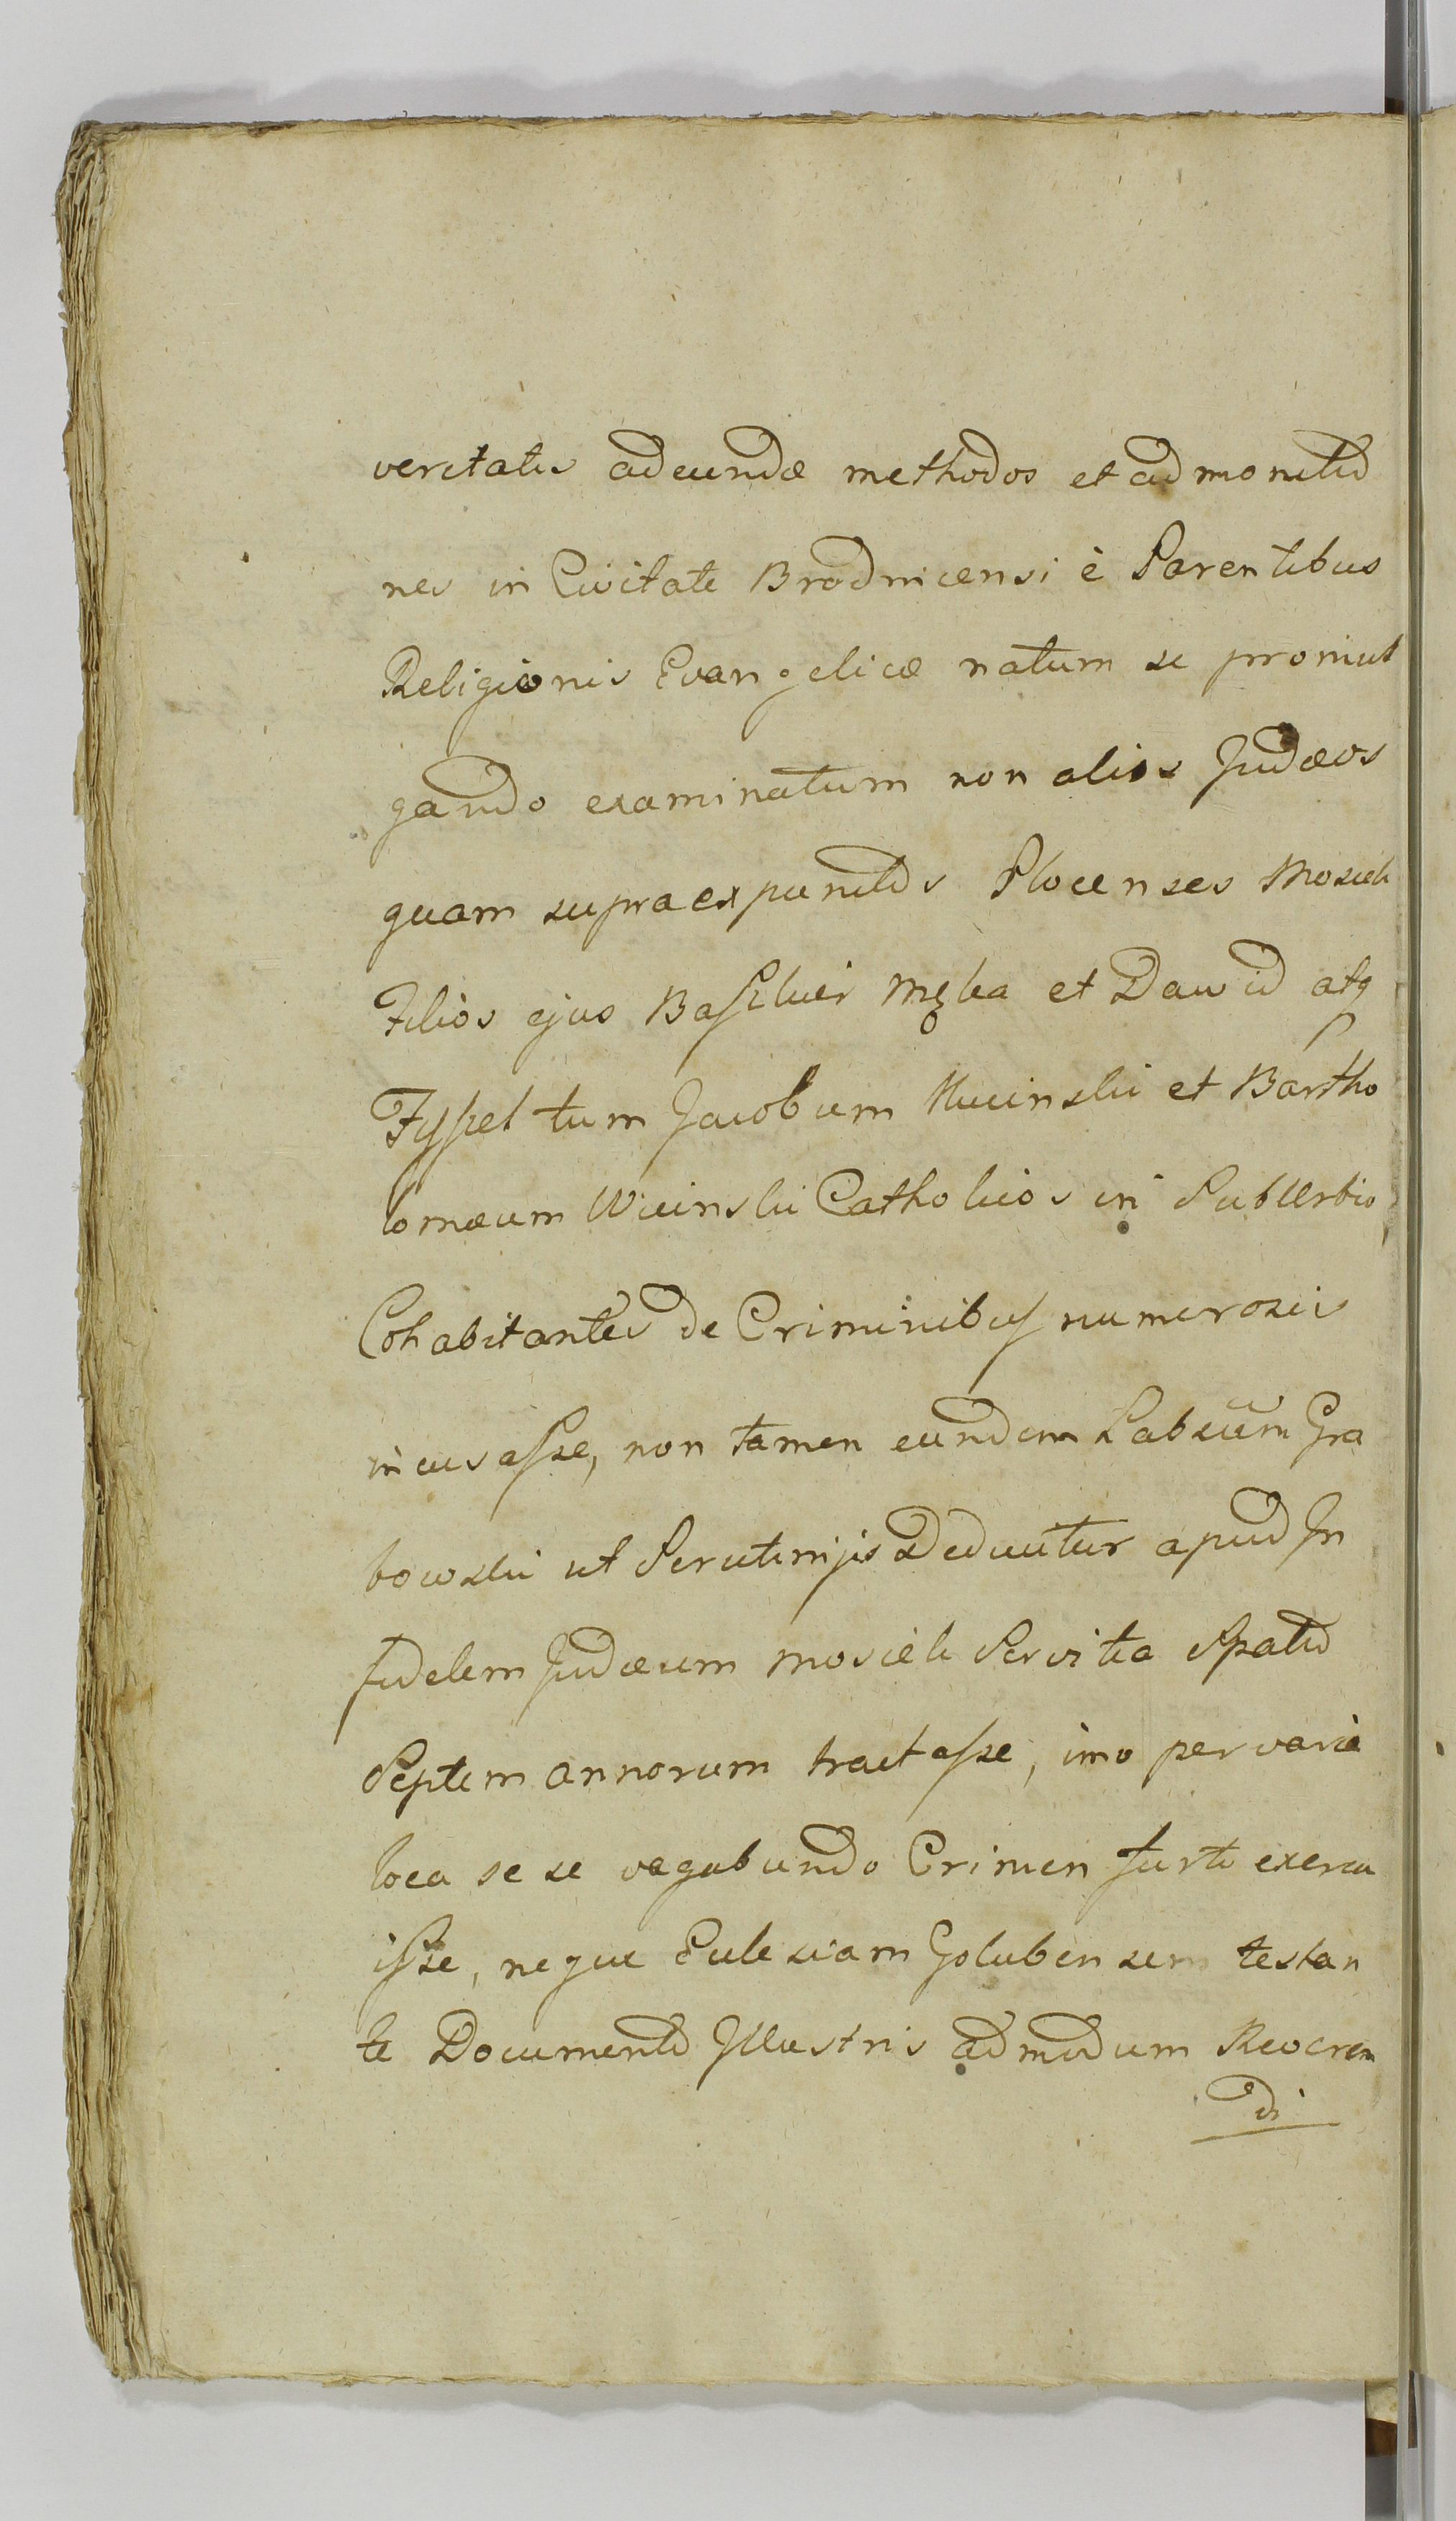 veritatis adeundæ methodos et admonitio
nes in Civitate Brodnicensi è Parentibus
Religionis Evangelicæ natum se promul
gando examinatum non alios Judæos
quam supraexpunitos Plocenses Mosiek
Filios ejus et Dawid atq
Fyszel tum Jacobum et Bartho
lomæum Wicinski Catholicos in SubUrbio
Cohabitantes de Criminibus numerosis
incusasse, non tamen eundem Labseum Gra
bowski ut Scrutinijs Deducitur apud In
fidelem Judæum Mosiek Servitia Spatio
Septem annorum tractasse, imo per varia
loca se se vagabundo Crimen furti exercu
isse, neque Eclesiam Golubensem testan
te Documento Jllustris admodum Reveren
di